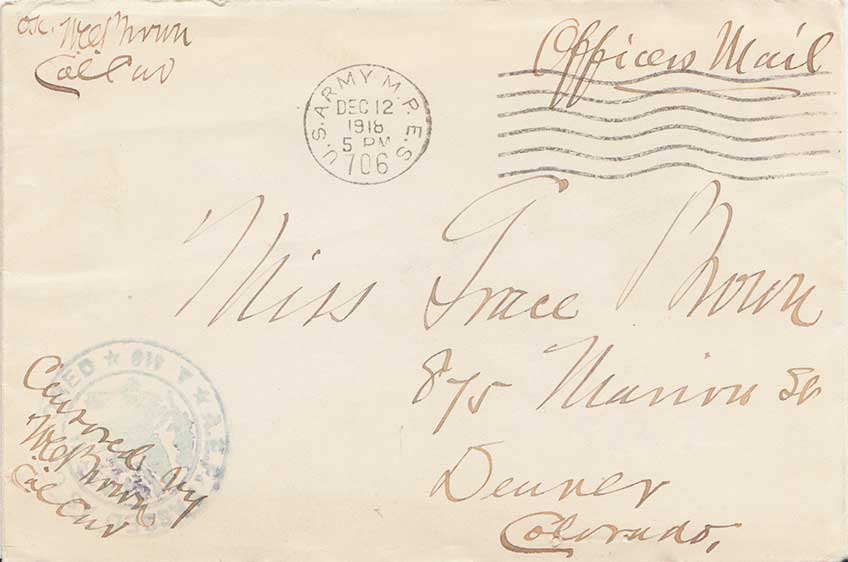 OK. WCBrown
Col Cav
Officers Mail
U.S. ARMY M.P.E.S.
DEC 12
1918
5 PM
706
Miss Grace Brown
875 Marion St
Denver
Colorado,
Censored by
WCBrown
Col Cav